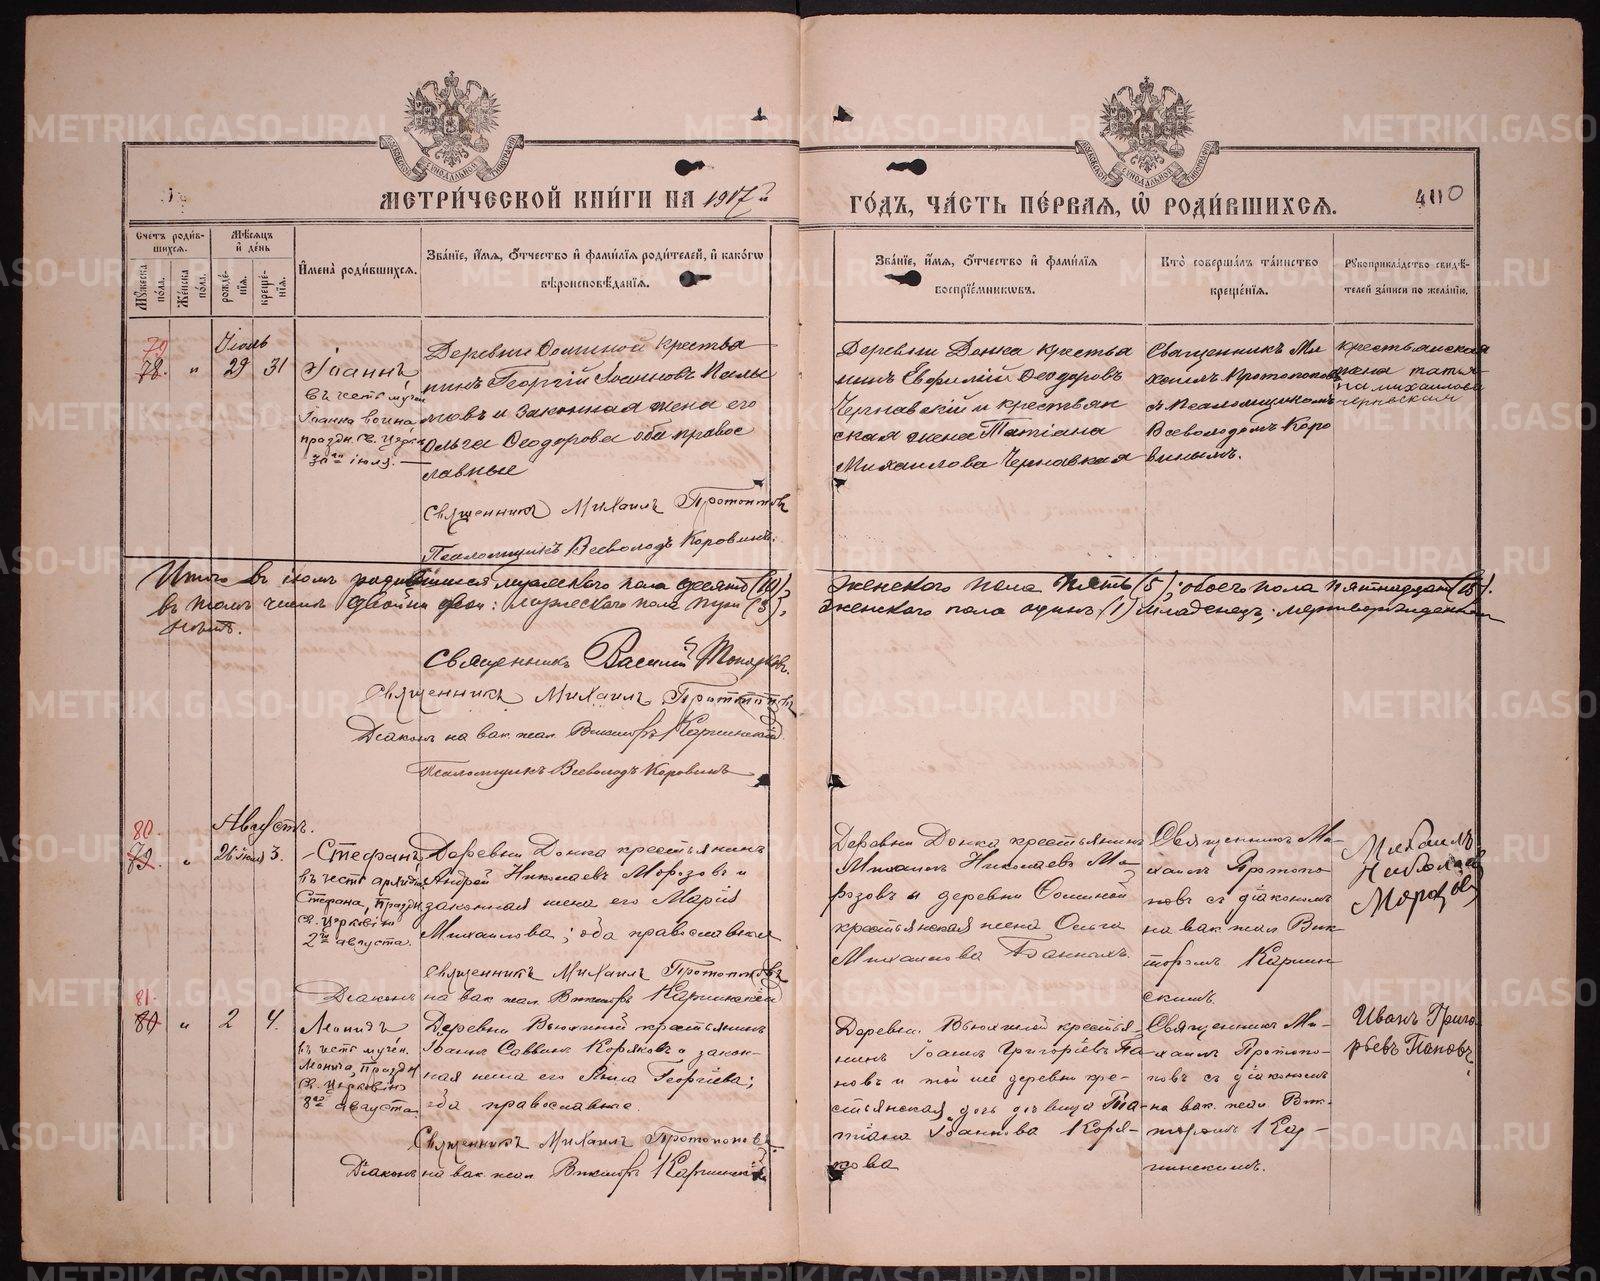 МЕТРИ́ЧЕСКОЙ КНИ́ГИ НА 1917й
ГО́ДЪ, ЧА́СТЬ ПЕ́РВАЯ, Ѽ РОДИ́ВШИХСЯ.
410
Счетъ роди́в-
шихся.
Мѣсяцъ
и́ де́нь
Мꙋ́жеска по́ла.
Же́нска по́ла.
рожде́-
нїя.
креще́-
нїя.
И҆мена̀ роди́вшихся.
Зва́нїе, и҆́мя, о҆́тчество и҆ фами́лїя роди́телей, и҆ како́гѡ
вѣроисповѣ́данїя.
Зва́нїе, и҆́мя, о҆́тчество и҆ фами́лїя
воспрїе́мникѡвъ.
Кто̀ соверша́лъ та́инство
креще́нїя.
Рꙋкоприкла́дство свидѣ́-
телей за́писи по жела́нїю.
Іюль
79
78.
"
29
31
Іоаннъ
въ честь мучен.
Іоанна воина,
праздн. св. Церк.
30го іюля.
Деревни Сосниной крестья
нинъ Георгій Іоанновъ
и законная жена его
Ольга Ѳеодорова оба правос
лавные
Священникъ Михаилъ Протопоповъ
Псаломщикъ Всеволодъ Коровинъ.
Деревни Донка крестья
нинъ Евфимій Ѳеодоровъ
Чернавскій и крестьян
ская жена Татіана
Михаилова Чернавская
Священникъ Ми
хаилъ Протопоповъ
съ Псаломщикомъ
Всеволодомъ Коро
винымъ.
крестьянская
жена Татья
на михаилова
Итого въ іюлѣ родившихся мужескаго пола десять (10),
женскаго пола пять (5); обоего пола пятнадцать (15).
въ томъ числѣ двойни двои: мужескаго пола три (3),
женскаго пола одинъ (1) младенец; мертворожденных
нѣтъ.
Священникъ Василій
Священникъ Михаилъ Протопоповъ
Діаконъ на вак. псал. Викторъ Каргинскій
Псаломщикъ Всеволодъ Коровинъ
Августъ.
80.
"
26 іюля
3.
Стефанъ
въ честь архидіак.
Стефана, праздн.
св. Церковію
2го августа.
Деревни Донка крестьянинъ
Андрей Николаевъ Морозовъ и
законная жена его Марія
Михаилова; оба православные
Священникъ Михаилъ Протопоповъ
Діаконъ на вак. псал. Викторъ Каргинскій
Деревни Донка крестьянинъ
Михаилъ Николаевъ Мо-
розовъ и деревни Сосниной
крестьянская жена Ольга
Михаилова Банныхъ.
Священникъ Ми-
хаилъ Протопо-
повъ съ діакономъ
на вак. псал. Вик-
торомъ Каргин
скимъ.
Михаилъ
Николаев
Морозов
81.
80
"
2
4.
Леонидъ
въ честь мучен.
Леонида, праздн.
св. Церковію
8го августа
Деревни Вьюхиной крестьянинъ
Іоаннъ Саввинъ Коряковъ и закон-
ная жена его Анна Георгіева;
оба православные.
Священникъ Михаилъ Протопоповъ
Діаконъ на вак. псал. Викторъ Каргинскій
Деревни Вьюхиной крестья-
нинъ Іоаннъ Григоріевъ Па-
новъ и той же деревни кре-
стьянская дочь дѣвица Та-
тіана Іоаннова Коря-
кова
Священникъ Ми-
хаилъ Протопо-
повъ съ діакономъ
на вак. псал. Вик-
торомъ Кар-
гинскимъ.
Иванъ Григо-
рьевъ Пановъ